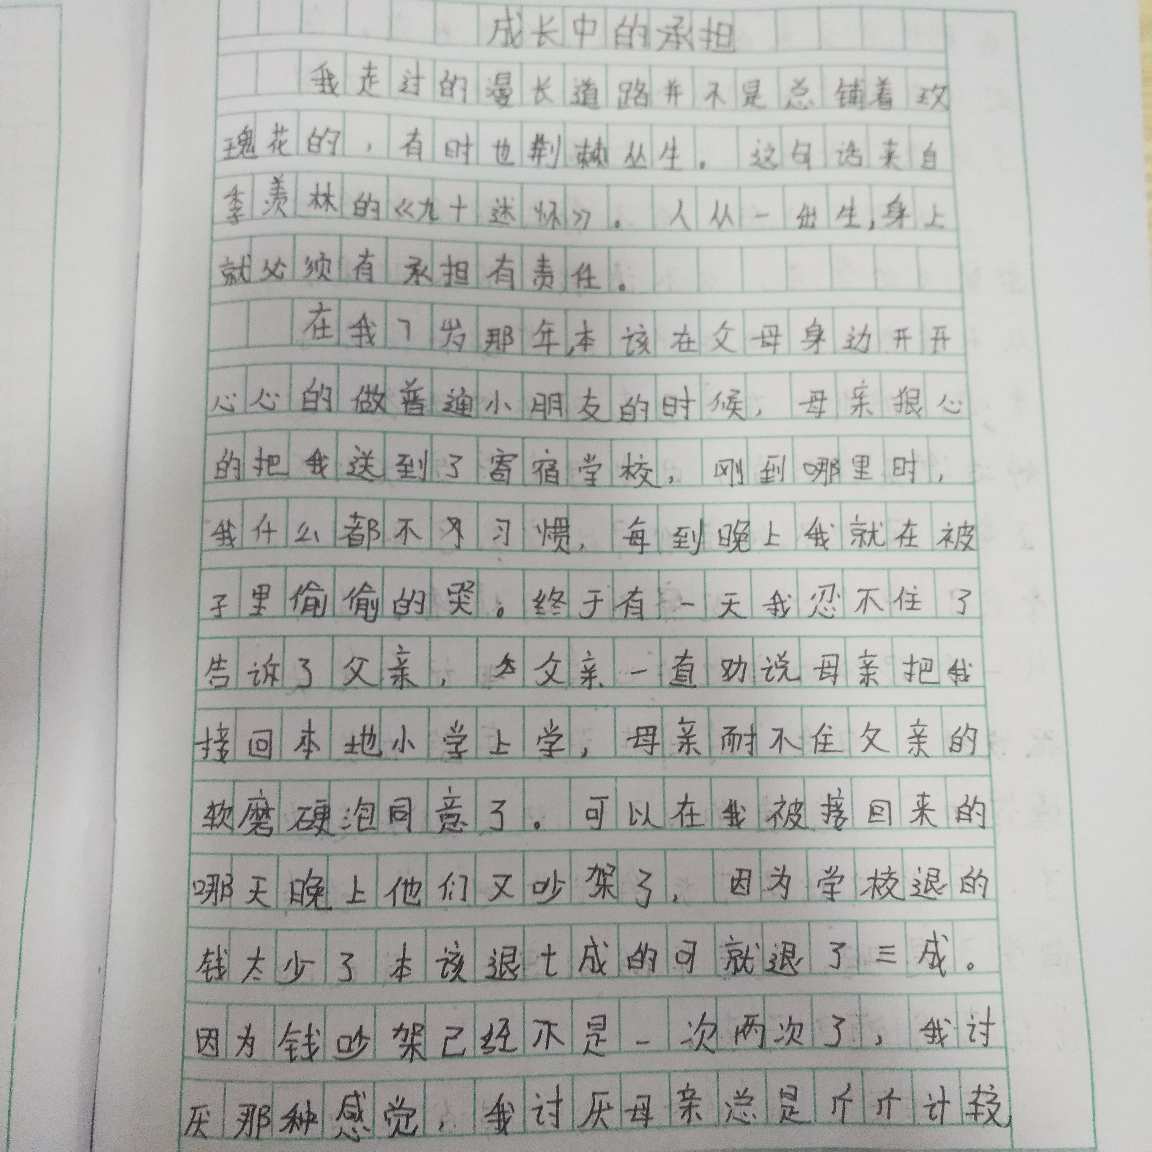 成长中的承担
我走过的漫长道路并不是总铺着玫
瑰花的，有时也荆棘丛生。这句话来自
季羡林的《九十述怀》。人从一出生,身上
就必须有承担有责任。
在我7岁那年,本该在父母身边开开
心心的做普通小朋友的时候，母亲狠心
的把我送到了寄宿学校，刚到哪里时，
我什么都不习惯，每到晚上我就在被
子里偷偷的哭。终于有一天我忍不住了
告诉了父亲，父亲一直劝说母亲把我
接回本地小学上学，母亲耐不住父亲的
软磨硬泡同意了。可以在我被接回来的
哪天晚上他们又吵架了，因为学校退的
钱太少了本该退七成的可就退了三成。
因为钱吵架已经不是一次两次了，我讨
厌那种感觉，我讨厌母亲总是斤斤计较